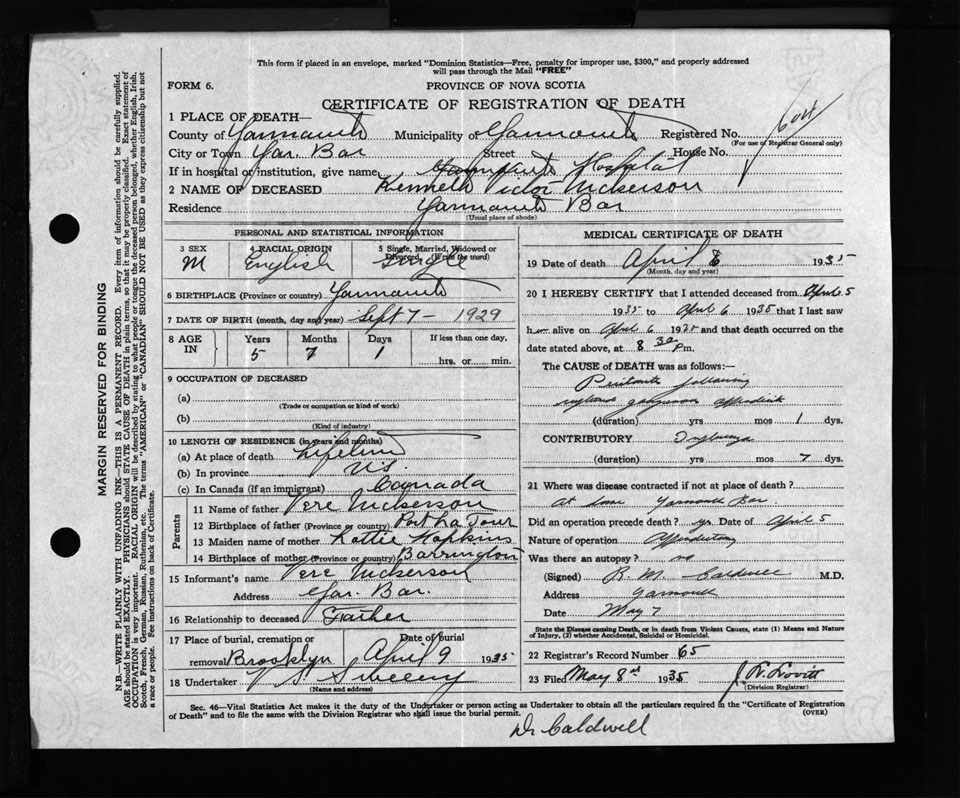 This form if placed in an envelope, marked "Dominion Statistics—Free, penalty for improper use, $300," and properly addressed
will pass through the Mail "FREE"
FORM 6.
PROVINCE OF NOVA SCOTIA
CERTIFICATE OF REGISTRATION OF DEATH
1 PLACE OF DEATH—
County of Yarmouth Municipality of Yarmouth Registered No.
(For use of Registrar General only)
City or Town Yar. Bar Street House No.
If in hospital or institution, give name Yarmouth Hospital
2 NAME OF DECEASED Kenneth Victor Nickerson
Residence Yarmouth Bar
(Usual place of abode)
PERSONAL AND STATISTICAL INFORMATION
3 SEX 4 RACIAL ORIGIN 5 Single, Married, Widowed or Divorced (Write the word)
M English Single
6 BIRTHPLACE (Province or country) Yarmouth
7 DATE OF BIRTH (month, day and year) Sept 7 - 1929
8 AGE IN Years Months Days If less than one day,
5 7 1 hrs. or min.
9 OCCUPATION OF DECEASED
(a)
(Trade or occupation or kind of work)
(b)
(Kind of industry)
10 LENGTH OF RESIDENCE (in years and months)
(a) At place of death Lifetime
(b) In province N.S.
(c) In Canada (if an immigrant) Canada
Parents
11 Name of father Vere Nickerson
12 Birthplace of father (Province or country) Port La Tour
13 Maiden name of mother Lottie Hopkins
14 Birthplace of mother (Province or country) Barrington
15 Informant's name Vere Nickerson
Address Yar. Bar.
16 Relationship to deceased Father
17 Place of burial, cremation or Date of burial
removal Brooklyn April 9 1935
18 Undertaker V. S. Sweeny
(Name and address)
MEDICAL CERTIFICATE OF DEATH
19 Date of death April 8 1935
(Month, day and year)
20 I HEREBY CERTIFY that I attended deceased from April 5
1935 to April 6 1935 that I last saw
h alive on April 6 1935 and that death occurred on the
date stated above, at 8 30 Pm.
The CAUSE of DEATH was as follows:—
Peritonitis following
ruptured gangrenous appendix
(duration) yrs mos 1 dys.
CONTRIBUTORY Influenza
(duration) yrs mos 7 dys.
21 Where was disease contracted if not at place of death?
At home Yarmouth Bar
Did an operation precede death? yes Date of April 5
Nature of operation Appendectomy
Was there an autopsy? no
(Signed) R. M. Caldwell M.D.
Address Yarmouth
Date May 7
State the Disease causing Death, or in death from Violent Causes, state (1) Means and Nature
of Injury, (2) whether Accidental, Suicidal or Homicidal.
22 Registrar's Record Number 65
23 Filed May 8th 1935
(Division Registrar)
Sec. 46—Vital Statistics Act makes it the duty of the Undertaker or person acting as Undertaker to obtain all the particulars required in the "Certificate of Registration
of Death" and to file the same with the Division Registrar who shall issue the burial permit. (OVER)
Dr Caldwell
MARGIN RESERVED FOR BINDING
N.B.—WRITE PLAINLY WITH UNFADING INK—THIS IS A PERMANENT RECORD. Every item of information should be carefully supplied.
AGE should be stated EXACTLY. PHYSICIANS should STATE CAUSE OF DEATH in plain terms, so that it may be properly classified. Exact statement of
OCCUPATION is very important. RACIAL ORIGIN will be described by stating to what people or tongue the deceased person belonged, whether English, Irish,
Scotch, French, German, Russian, Ruthenian, etc. The terms "AMERICAN" or "CANADIAN" SHOULD NOT BE USED as they express citizenship but not
a race or people. See instructions on back of Certificate.